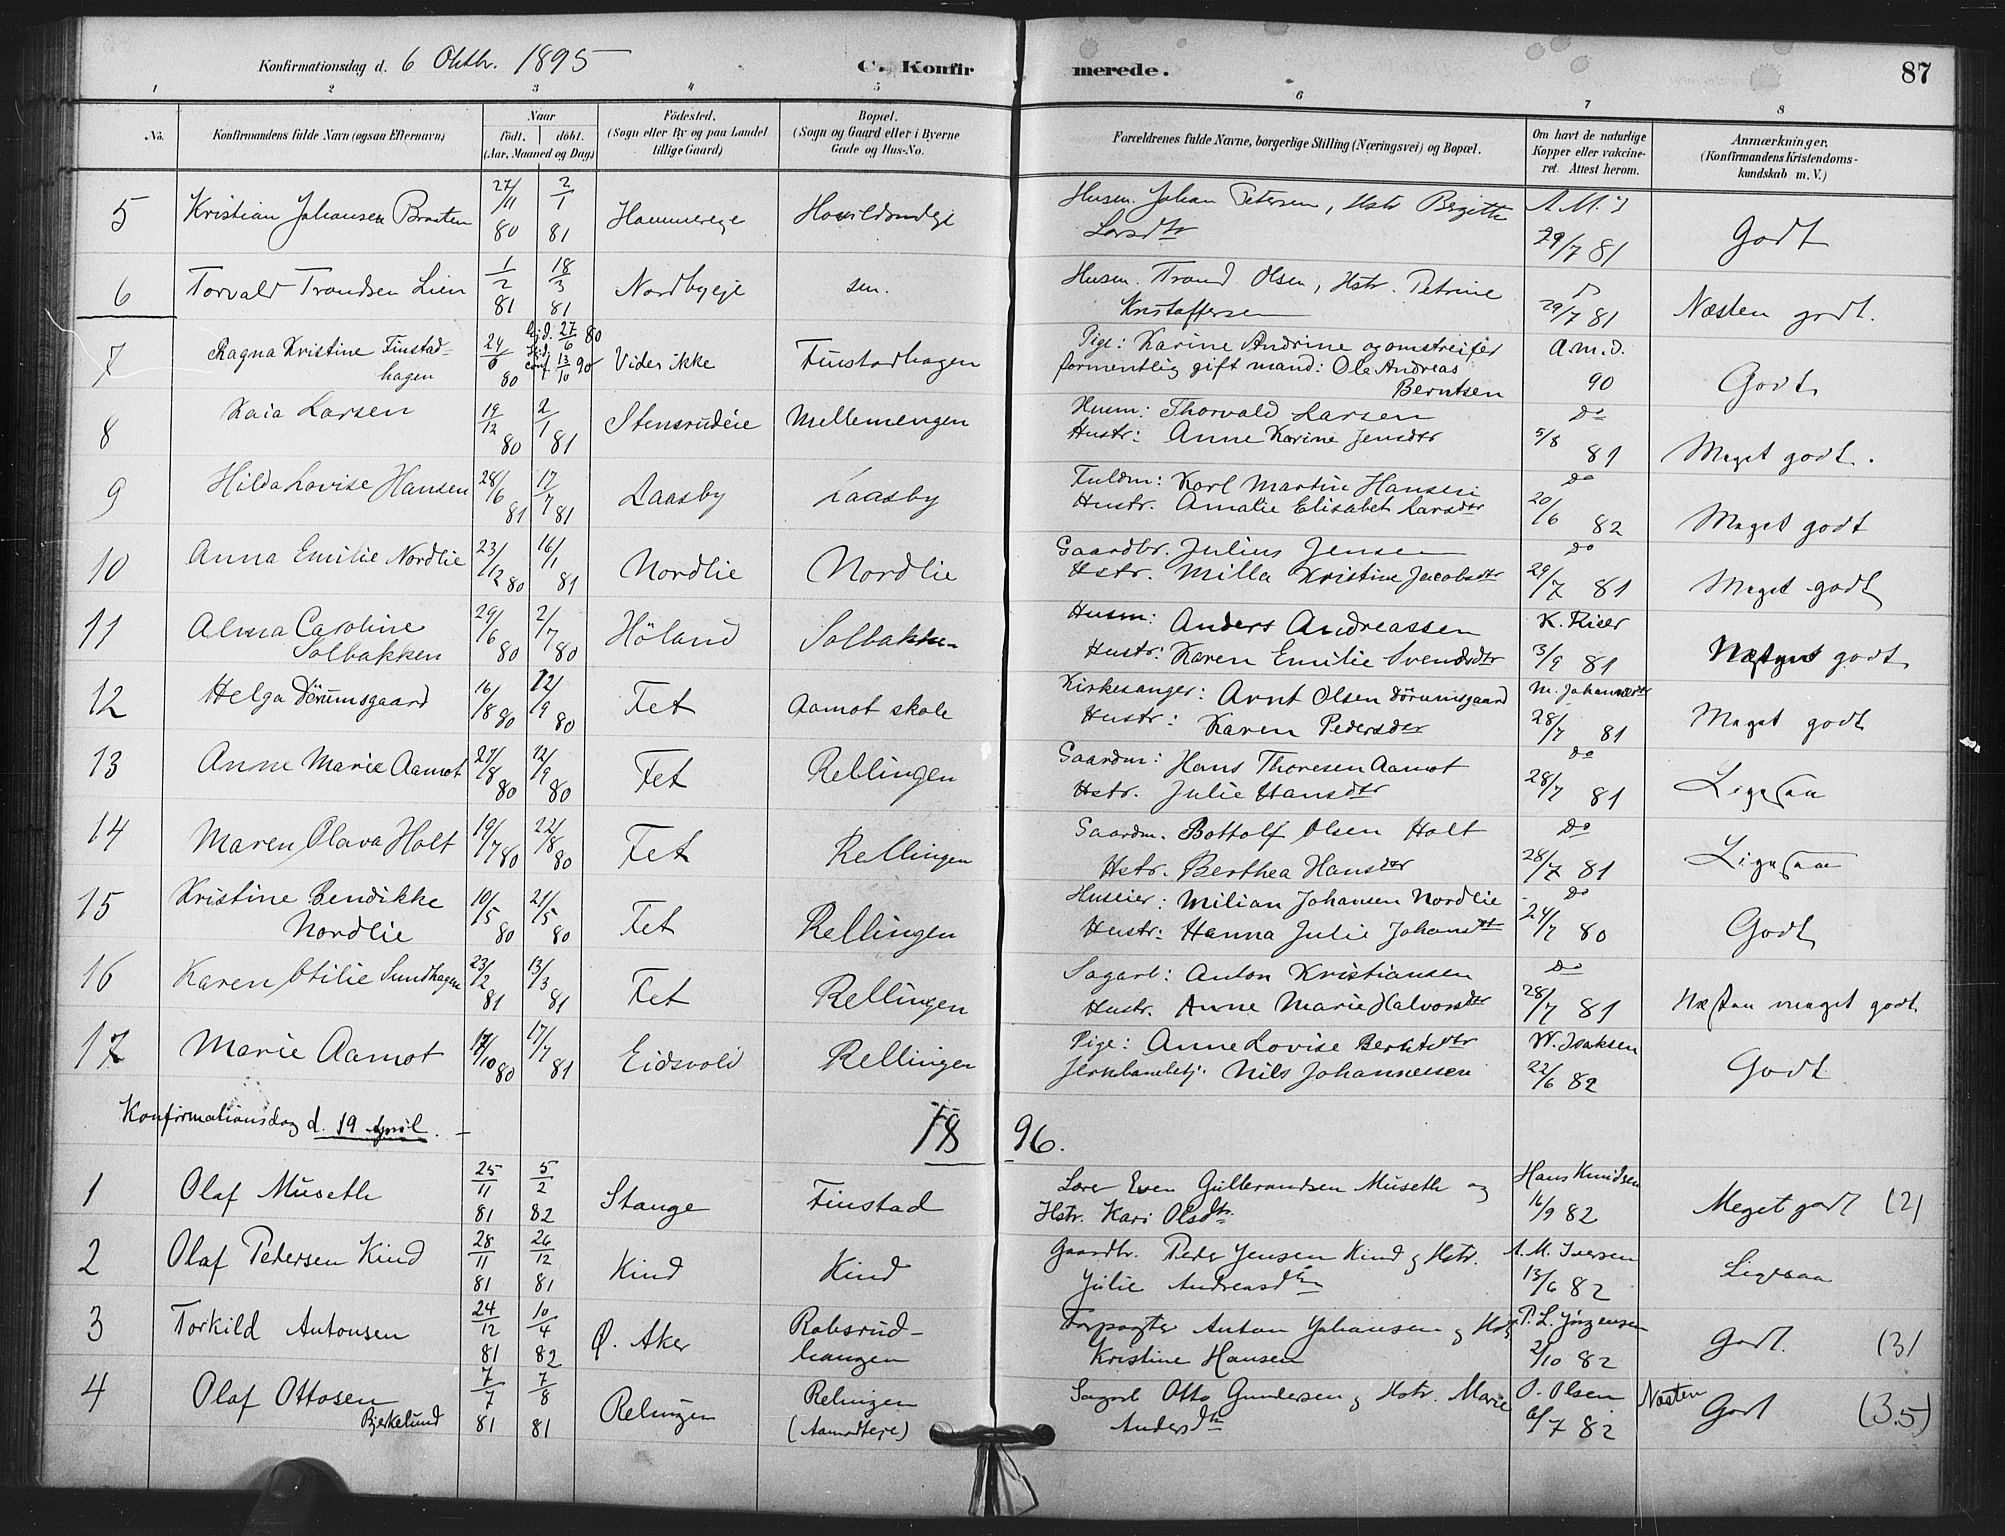 Konfirmationsdag d. 6 Oktbr. 1895
C. Konfirmerede.
87
1 2 3 4 5 6 7 8
No.
Konfirmandens fulde Navn (ogsaa Efternavn)
Naar
födt. döbt.
(Aar, Maaned og Dag)
Födested.
(Sogn eller By og paa Landet
tillige Gaard)
Bopæl.
(Sogn og Gaard eller i Byerne
Gade og Hus-No.
Forældrenes fulde Navne, borgerlige Stilling (Næringsvei) og Bopæl.
Om havt de naturlige
Kopper eller vakcine-
ret. Attest herom.
Anmærkninger.
(Konfirmandens Kristendoms-
kundskab m. V.)
5 Kristian Johansen Braaten 27/11 80 2/1 81 Hammereje Husm. Johan Petersen, Hstr Birgitte
Larsdtr 29/7 81 Godt
6 Torvald Trondsen Lien 1/2 81 18/3 81 Nordbyeje sm. Husm. Trond Olsen, Hstr. Petrine
Kristoffersen Do 29/7 81 Næsten godt.
7 Ragna Kristine Finstad-
hagen 24/6 80 27/6 80 conf. 13/10 90 Vides ikke Finstadhagen Pige: Karine Andrine og omstreifer
formentlig gift mand: Ole Andreas
Berntsen A.M.I. 90 Godt
8 Kaia Larsen 19/12 80 2/1 81 Stensrudeie Mellemengen Husm: Thorvald Larsen
Hustr: Anne Karine Jensdtr Do 5/8 81 Meget godt.
9 Hilda Lovise Hansen 28/6 81 17/7 81 Laasby Laasby Fuldm: Karl Martin Hansen
Hustr. Amalie Elisabet Larsdtr Do 20/6 82 Meget godt
10 Anna Emilie Nordlie 23/12 80 16/1 81 Nordlie Nordlie Gaardbr. Julius Jensen
Hstr. Milla Kristine Jacobsdtr Do 29/7 81 Meget godt
11 Alma Caroline
Solbakken 29/6 80 2/7 80 Höland Solbakken Husm: Anders Andreassen
Hustr: Karen Emilie Svendsdtr K. Riser 13/9 81 godt
12 Helga Dörumsgaard 16/8 80 12/9 80 Fet Aamot skole Kirkesanger: Arnt Olsen Dörumsgaard
Hustr: Karen Pedersdtr 28/7 81 Meget godt
13 Anne Marie Aamot 27/8 80 12/9 80 Fet Rellingen Gaardm: Hans Thoresen Aamot
Hstr. Julie Hansdtr Do 28/7 81 Ligesaa
14 Maren Olava Holt 19/7 80 22/8 80 Fet Rellingen Gaardm. Bottolf Olsen Holt
Hstr. Berthea Hansdtr Do 28/7 81 Ligesaa
15 Kristine Bendikke
Nordlie 10/5 80 21/5 80 Fet Rellingen Huseier: Milian Johansen Nordlie
Hustr: Hanna Julie Johansdtr Do 24/7 80 Godt
16 Karen Otilie Sundhagen 23/2 81 13/3 81 Fet Rellingen Sagarb: Anton Kristiansen
Hustr. Anne Marie Halvorsdtr Do 28/7 81 Næsten meget godt
17 Marie Aamot 17/10 80 17/7 81 Eidsvold Rellingen Pige: Anne Lovise Berntsdtr
Jernbanebetj. Nils Johannesen W. Isaksen 22/6 82 Godt
Konfirmationsdag d. 19 April. 1896.
1 Olaf Museth 25/11 81 5/2 82 Stange Finstad Lærer Even Gulbrandsen Museth og
Hstr. Kari Olsdtr. Hans Knudsen 16/9 82 Meget godt (2)
2 Olaf Pedersen Kind 28/11 81 26/12 81 Kind Kind Gaardbr. Peder Jensen Kind og Hstr.
Julie Andreasdtr A. M. Iversen 13/6 82 Ligesaa
3 Torkild Antonsen 24/12 81 10/4 82 Ø. Aker Robsrud-
haugen Forpagter Anton Johansen og Hstr
Kristine Hansen P. L. Jörgensen 2/10 82 Godt. (3)
4 Olaf Ottosen
Bjerkelund 7/7 81 7/8 81 Relingen Relingen
(Aamodteje) Sagarb Otto Gundersen og Hstr. Marie
Andersdtr O. Olsen 6/7 82 Næsten Godt (3.5)